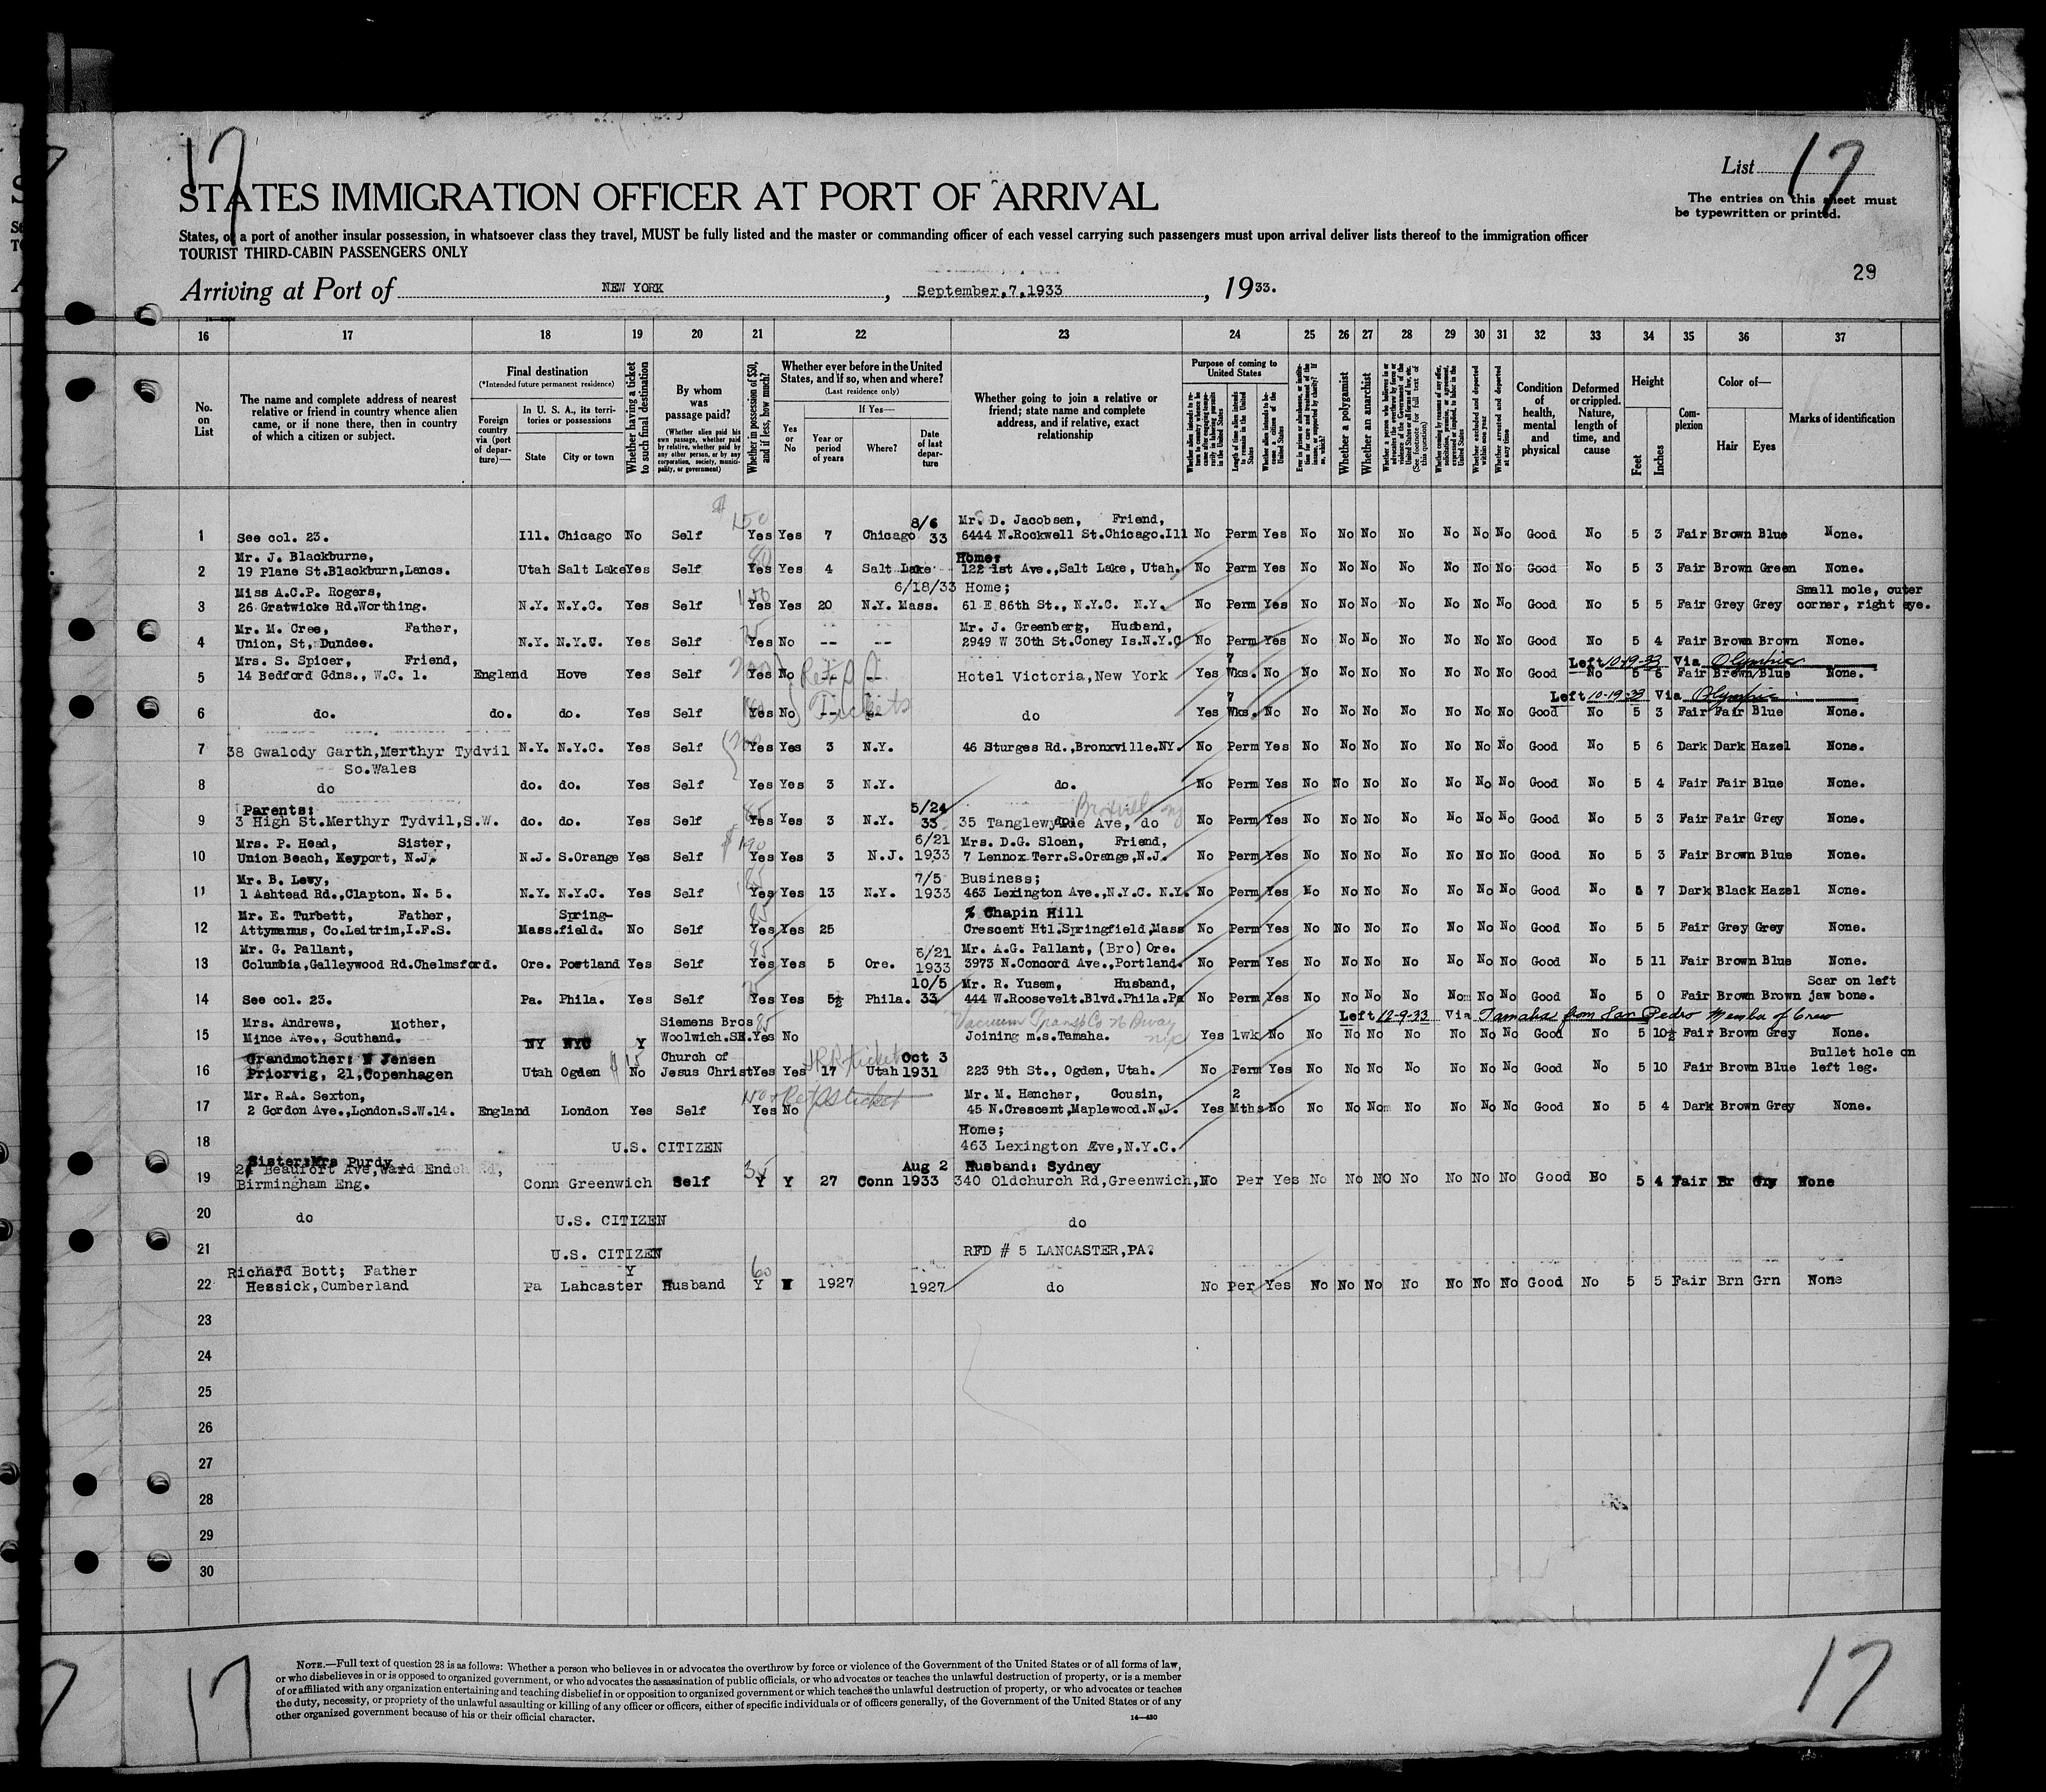 17
List 17
STATES IMMIGRATION OFFICER AT PORT OF ARRIVAL
The entries on this sheet must
be typewritten or printed.
States, or a port of another insular possession, in whatsoever class they travel, MUST be fully listed and the master or commanding officer of each vessel carrying such passengers must upon arrival deliver lists thereof to the immigration officer
TOURIST THIRD-CABIN PASSENGERS ONLY
29
Arriving at Port of NEW YORK, September,7,1933, 1933.
16 17 18 19 20 21 22 23 24 25 26 27 28 29 30 31 32 33 34 35 36 37
No. on List
The name and complete address of nearest relative or friend in country whence alien came, or if none there, then in country of which a citizen or subject.
Final destination
(*Intended future permanent residence)
Foreign country via (port of departure)—
In U. S. A., its territories or possessions
State City or town
Whether having a ticket to such final destination
By whom was passage paid?
(Whether alien paid his own passage, whether paid by relative, whether paid by any other person, or by any corporation, society, municipality, or government)
Whether in possession of $50, and if less, how much?
Whether ever before in the United States, and if so, when and where?
(Last residence only)
Yes or No
If Yes—
Year or period of years
Where?
Date of last departure
Whether going to join a relative or friend; state name and complete address, and if relative, exact relationship
Purpose of coming to United States
Length of time alien intends to remain in the United States
Whether alien intends to become a citizen of the United States
Whether a polygamist
Whether an anarchist
Whether excluded and deported within one year
Whether arrested and deported at any time
Condition of health, mental and physical
Deformed or crippled. Nature, length of time, and cause
Height
Feet Inches
Complexion
Color of—
Hair Eyes
Marks of identification
8/6 Mr. D. Jacobsen, Friend,
1 See col. 23. Ill. Chicago No Self 150 Yes Yes 7 Chicago 33 6444 N.Rockwell St.Chicago.Ill No Perm Yes No No No No No No No Good No 5 3 Fair Brown Blue None.
Mr. J. Blackburne, Home;
2 19 Plane St.Blackburn,Lancs. Utah Salt Lake Yes Self 80 Yes Yes 4 Salt Lake 122 1st Ave.,Salt Lake, Utah. No Perm Yes No No No No No No No Good No 5 3 Fair Brown Green None.
Miss A.C.P. Rogers, 6/18/33 Home; Small mole, outer
3 26 Gratwicke Rd.Worthing. N.Y. N.Y.C. Yes Self Yes Yes 20 N.Y. Mass. 61 E 86th St., N.Y.C. N.Y. No Perm Yes No No No No No No No Good No 5 5 Fair Grey Grey corner, right eye.
Mr. M. Cree, Father, Mr. J. Greenberg, Husband,
4 Union, St, Dundee. N.Y. N.Y.C. Yes Self Yes No -- -- 2949 W 30th St.Coney Is.N.Y.C No Perm Yes No No No No No No No Good No 5 4 Fair Brown Brown None.
Mrs. S. Spicer, Friend, 7 Left 10-19-33 Via Olympic
5 14 Bedford Gdns., W.C. 1. England Hove Yes Self 200 Yes No -- -- Hotel Victoria,New York Yes Wks. No No No No No No No No Good No 5 6 Fair Brown Blue None.
Tickets 7 Left 10-19-33 Via Olympic
6 do. do. do. Yes Self Yes No -- -- do Yes Wks. No No No No No No No No Good No 5 3 Fair Fair Blue None.
7 38 Gwalody Garth,Merthyr Tydvil N.Y. N.Y.C. Yes Self 200 Yes Yes 3 N.Y. 46 Sturges Rd.,Bronxville.NY. No Perm Yes No No No No No No No Good No 5 6 Dark Dark Hazel None.
So.Wales
8 do do. do. Yes Self Yes Yes 3 N.Y. do. No Perm Yes No No No No No No No Good No 5 4 Fair Fair Blue None.
Parents: 5/24
9 3 High St.Merthyr Tydvil,S.W. do. do. Yes Self 65 Yes Yes 3 N.Y. 33 35 Tanglewylde Ave, do No Perm Yes No No No No No No No Good No 5 3 Fair Fair Grey None.
Mrs. P. Head, Sister, 6/21 Mrs. D.G. Sloan, Friend,
10 Union Beach, Keyport, N.J. N.J. S.Orange Yes Self $190 Yes Yes 3 N.J. 1933 7 Lennox Terr.S.Orange,N.J. No Perm Yes No No No No No No No Good No 5 3 Fair Brown Blue None.
Mr. B. Levy, 7/5 Business;
11 1 Ashtead Rd.,Clapton. N. 5. N.Y. N.Y.C. Yes Self Yes Yes 13 N.Y. 1933 463 Lexington Ave.,N.Y.C. N.Y. No Perm Yes No No No No No No No Good No 5 7 Dark Black Hazel None.
Mr. E. Turbett, Father, Spring- % Chapin Hill
12 Attymanus, Co.Leitrim,I.F.S. Mass. field. No Self 85 Yes Yes 25 Crescent Htl.Springfield,Mass No Perm Yes No No No No No No No Good No 5 5 Fair Grey Grey None.
Mr. G. Pallant, 6/21 Mr. A.G. Pallant, (Bro) Ore.
13 Columbia,Galleywood Rd.Chelmsford. Ore. Portland Yes Self 85 Yes Yes 5 Ore. 1933 3973 N.Concord Ave.,Portland. No Perm Yes No No No No No No No Good No 5 11 Fair Brown Blue None.
10/5 Mr. R. Yusem, Husband, Scar on left
14 See col. 23. Pa. Phila. Yes Self Yes Yes 5½ Phila. 33 444 W.Roosevelt.Blvd.Phila.Pa No Perm Yes No No No No No No No Good No 5 0 Fair Brown Brown jaw bone.
Mrs. Andrews, Mother, Siemens Bros 85 Vacuum Transp Co Left 12-9-33 Via Tamaha from San Pedro Member of Crew
15 Mince Ave., Southend. NY NYC Y Woolwich.SE. Yes No Joining m.s.Tamaha. Yes 1wk No No No No No No No No Good No 5 10½ Fair Brown Grey None.
Grandmother: Jensen $15 Church of RR ticket Oct 3 Bullet hole on
16 Priorvig, 21,Copenhagen Utah Ogden No Jesus Christ Yes Yes 17 Utah 1931 223 9th St., Ogden, Utah. No Perm Yes No No No No No No No Good No 5 10 Fair Brown Blue left leg.
Mr. R.A. Sexton, 150 ticket Mr. M. Hancher, Cousin, 2
17 2 Gordon Ave.,London.S.W.14. England London Yes Self Yes No 45 N.Crescent,Maplewood.N.J. Yes Mths No No No No No No No No Good No 5 4 Dark Brown Grey None.
Home;
18 U.S. CITIZEN 463 Lexington Ave,N.Y.C.
Sister:Mrs Purdy 35 Aug 2 Husband: Sydney
19 Beaufort Ave,Ward End Conn Greenwich Self Y Y 27 Conn 1933 340 Oldchurch Rd,Greenwich, No Per Yes No No NO No No No No Good No 5 4 Fair Br Gry None
Birmingham Eng.
20 do U.S. CITIZEN do
21 U.S. CITIZEN RFD # 5 LANCASTER,PA.
Richard Bott; Father Y 60
22 Hessick,Cumberland Pa Lancaster Husband Y 1927 1927 do No Per Yes No No No No No No No Good No 5 5 Fair Brn Grn None
23
24
25
26
27
28
29
30
NOTE.—Full text of question 28 is as follows: Whether a person who believes in or advocates the overthrow by force or violence of the Government of the United States or of all forms of law,
or who disbelieves in or is opposed to organized government, or who advocates the assassination of public officials, or who advocates or teaches the unlawful destruction of property, or is a member
of or affiliated with any organization entertaining and teaching disbelief in or opposition to organized government or which teaches the unlawful destruction of property, or who advocates or teaches
the duty, necessity, or propriety of the unlawful assaulting or killing of any officer or officers, either of specific individuals or of officers generally, of the Government of the United States or of any
other organized government because of his or their official character.
14—430
17
17